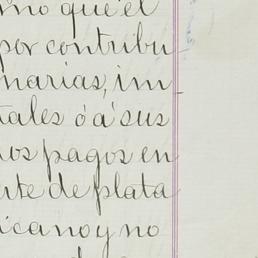 mo que él
por contribu
narias, im-
tales ó á sus
os pagos en
rte de plata
icano y no